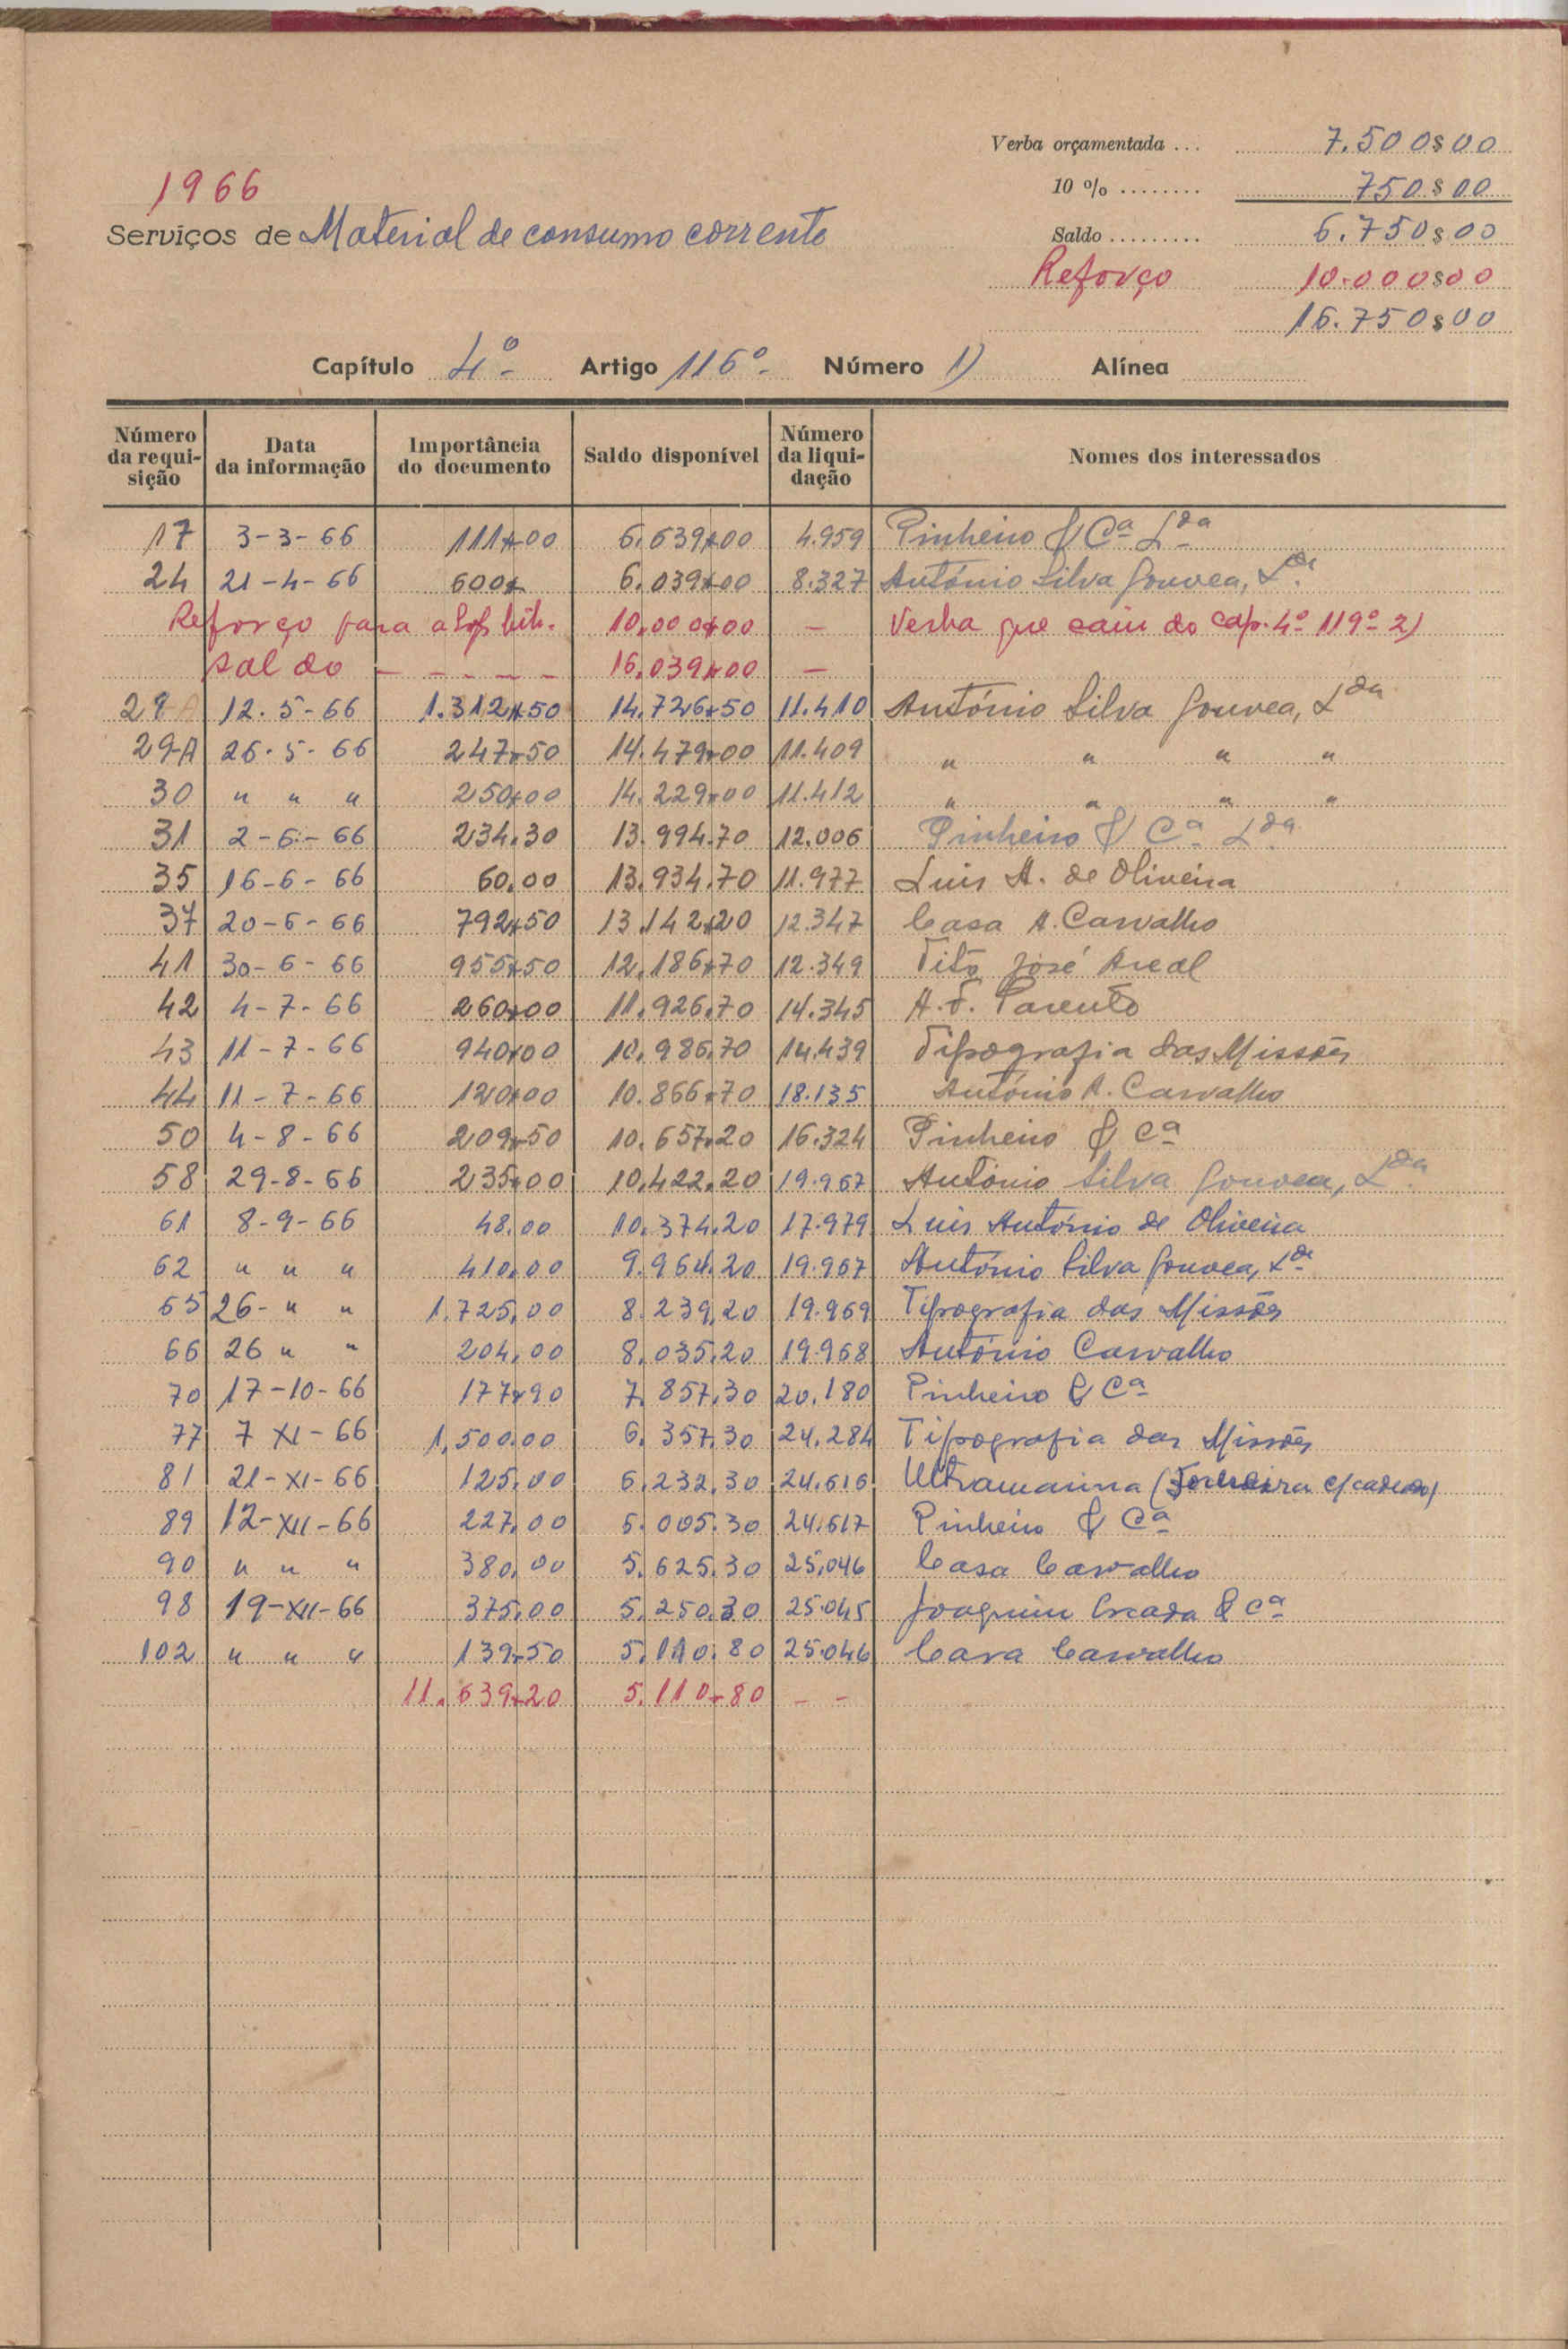 Verba orçamentada ... 7.500$00
1966
10 % ........ 750$00
Serviços de Material de consumo corrente
Saldo ......... 6.750$00
Reforço 10.000$00
16.750$00
Capítulo 4º Artigo 116º Número 1) Alínea
Número da requi-sição Data da informação Importância do documento Saldo disponível Número da liqui-dação Nomes dos interessados
17 3-3-66 111$00 6.639$00 4.959 Pinheiro & Cª Lda
24 21-4-66 600$ 6.039$00 8.327 António Silva Gouvea, Lda.
Reforço para a 10.000$00 — Verba que saiu do cap. 4º 119º 2)
Saldo - - - - - 16.039$00 —
29 12.5-66 1.312$50 14.726$50 11.410 António Silva Gouvea, Lda
29-A 26.5-66 247$50 14.479$00 11.409 " " " "
30 " " " 250$00 14.229$00 11.412 " " " "
31 2-6-66 234.30 13.994.70 12.006 Pinheiro & Cª Lda
35 16-6-66 60.00 13.934.70 11.977 Luis A. de Oliveira
37 20-6-66 792$50 13.142$20 12.347 Casa A. Carvalho
41 30-6-66 955$50 12.186$70 12.349 Tito José Areal
42 4-7-66 260$00 11.926.70 14.345 A. F. Parento
43 11-7-66 940$00 10.986.70 14.439 Tipografia das Missões
44 11-7-66 120$00 10.866$70 18.135 António A. Carvalho
50 4-8-66 209$50 10.657$20 16.324 Pinheiro & Cª
58 29-8-66 235$00 10.422.20 19.967 António Silva Gouvea, Lda.
61 8-9-66 48.00 10.374.20 17.979 Luis António de Oliveira
62 " " " 410.00 9.964.20 19.967 António Silva Gouvea, Lda
65 26- " " 1.725.00 8.239.20 19.969 Tipografia das Missões
66 26 " " 204.00 8.035.20 19.968 António Carvalho
70 17-10-66 177$90 7.857.30 20.180 Pinheiro & Cª
77 7 XI-66 1.500.00 6.357.30 24.284 Tipografia das Missões
81 21-XI-66 125.00 6.232.30 24.616 Ultramarina (
89 12-XII-66 227.00 6.005.30 24.617 Pinheiro & Cª
90 " " " 380.00 5.625.30 25.046 Casa Carvalho
98 19-XII-66 375.00 5.250.30 25.045 Joaquim & Cª
102 " " " 139$50 5.110.80 25.046 Casa Carvalho
11.639$20 5.110$80 - -